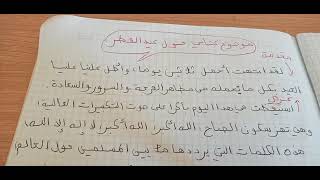 موضوع كتابي حول عيد الفطر
مقدمة
لقد انتهت أجمل ثلاثين يوما، وأطل علينا
العيد بكل ما يحمله من مظاهر الفرحة والسرور والسعادة.
عرض
استيقظت صباح هذا اليوم باكرا على صوت التكبيرات العالية،
وهي تهز سكون الصباح: الله أكبر، الله أكبر، لا إله إلا الله،
هذه الكلمات التي يرددها المسلمين حول العالم